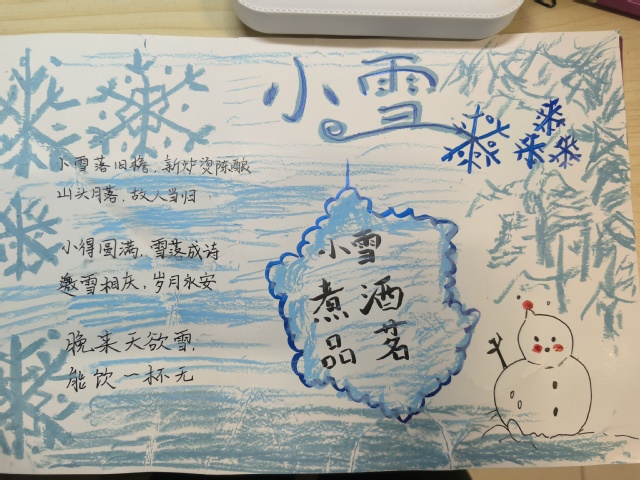 小雪
小雪落旧檐,新炉烫陈酿
山头月落,故人当归
小得圆满,雪落成诗
邀雪相庆,岁月永安
晚来天欲雪,
能饮一杯无
小雪
煮酒
品茗